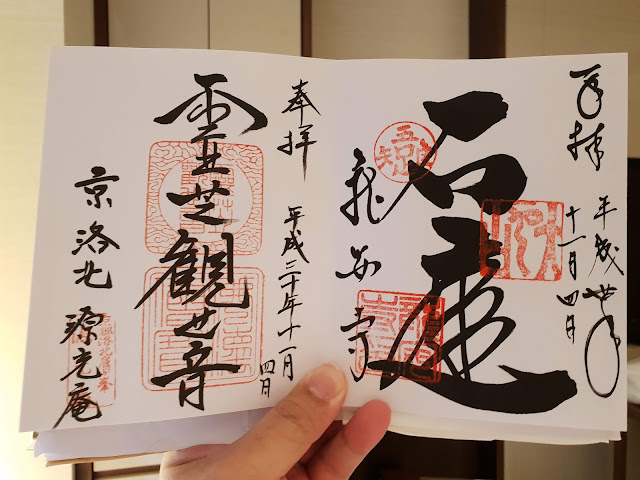 奉拝 平成卅年
十一月四日
石庭
龍安寺
奉拝 平成三十年十一月
四日
靈芝観世音
京洛北 源光庵